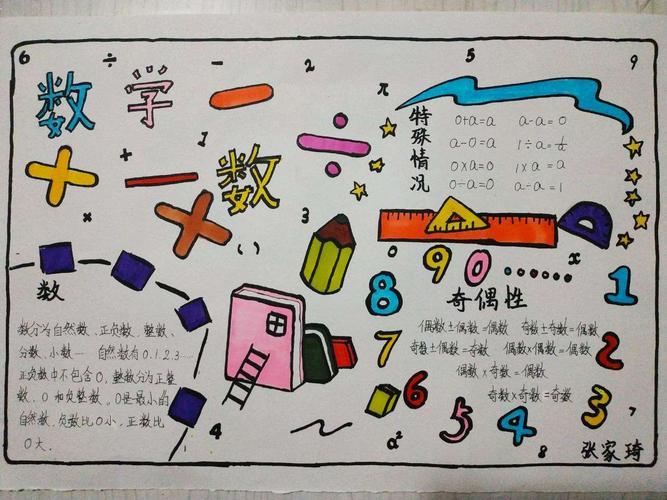 6 ÷ − 2 π 5 9
数学
+ 1
数
× ( ) 3
特殊情况
0+a=a a-a=0
a-0=a 1÷a=1/a
0×a=0 1×a=a
0÷a=0 a-a=1
0 9 0 ...... x
8 1
7 2
6 5 4 3
奇偶性
偶数±偶数=偶数 奇数±奇数=偶数
奇数±偶数=奇数 偶数×偶数=偶数
偶数×奇数=偶数
奇数×奇数=奇数
数
数分为自然数、正负数、整数、
分数、小数… 自然数有0.1.2.3…
正负数中不包含0，整数分为正整
数、0和负整数。0是最小的
自然数，负数比0小，正数比
0大.
4 a² 8 7
张家琦